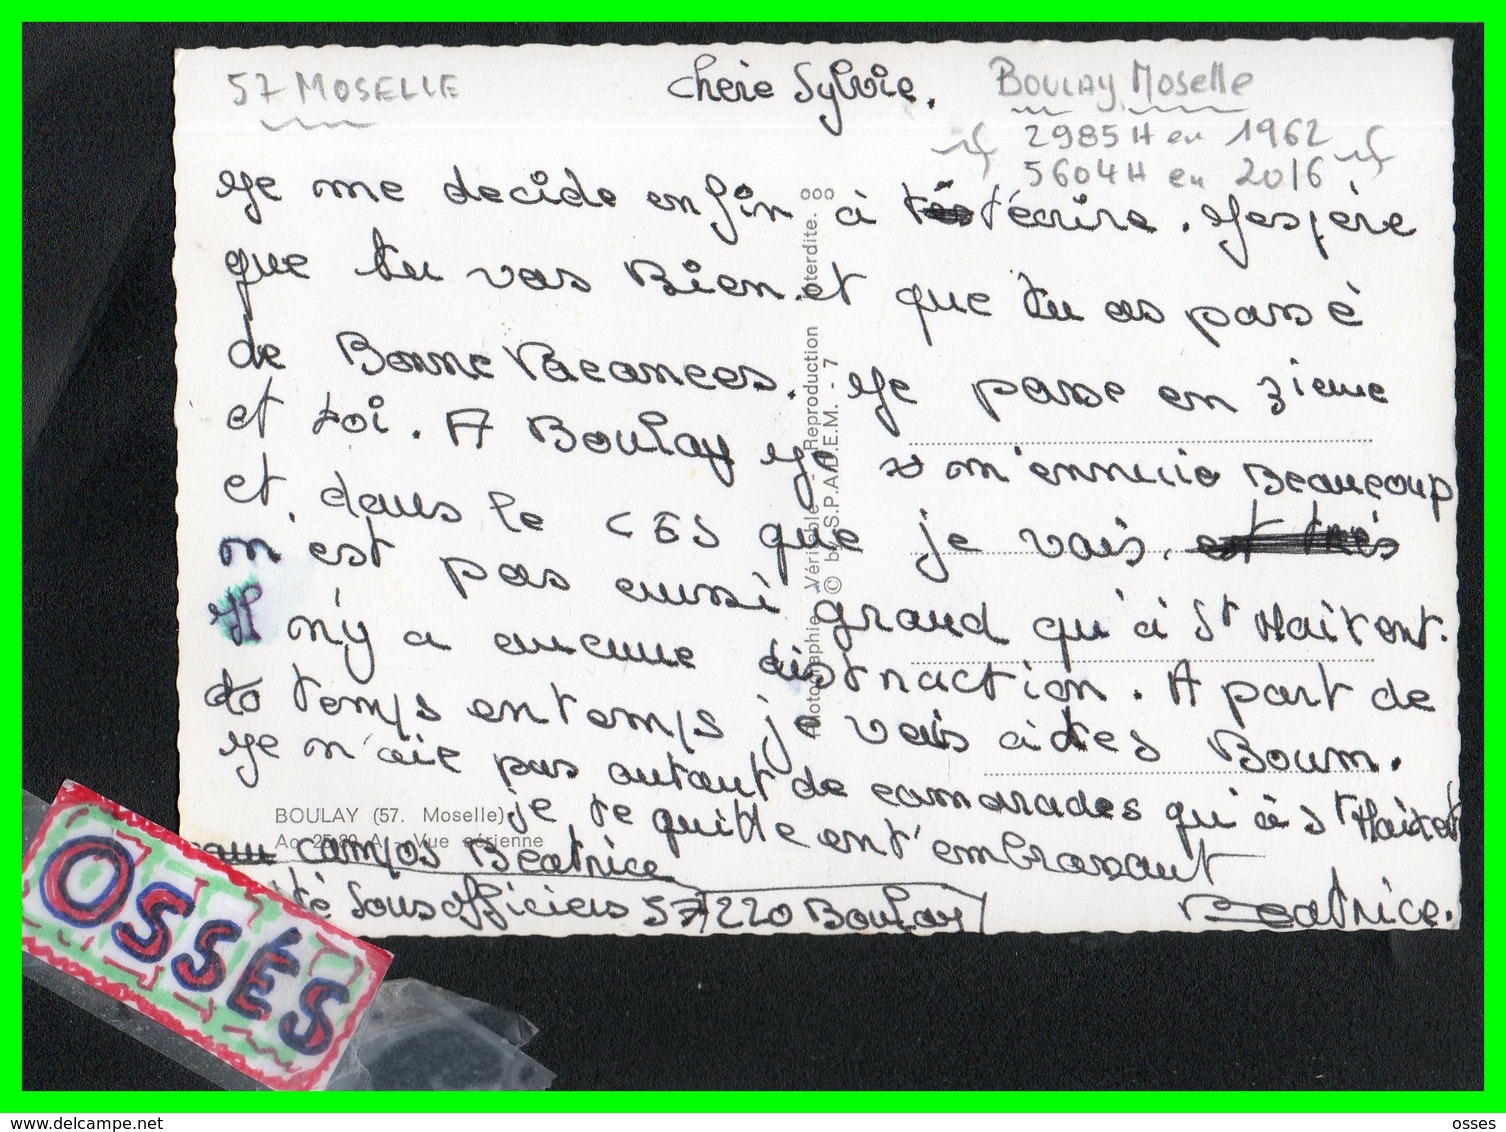 57 MOSELLE
chère Sylvie.
Boulay Moselle
2985 H en 1962
5604 H en 2016
Je me decide enfin à t'écrire. J'espère
que tu vas Bien et que tu as passé
de Bonne Vacances. Je passe en 3ieme
et toi. A Boulay je m'ennuie Beaucoup
et dans le CES que je vais. est très
n est pas aussi grand qu'à St Maixent.
Il n'y a aucune distraction. A part de
de temps en temps je vais à des Boum.
Je n'aie pas autant de camarades qu'à St Maixent
je te quitte en t'embrassant
Beatrice.
Campos Beatrice
té Sous officiers 57220 Boulay
BOULAY (57. Moselle)
Ac 25.89 A - Vue aérienne
Photographie Véritable - Reproduction interdite.
© by S.P.A.D.E.M. - 7
OSSÈS
www.delcampe.net
osses